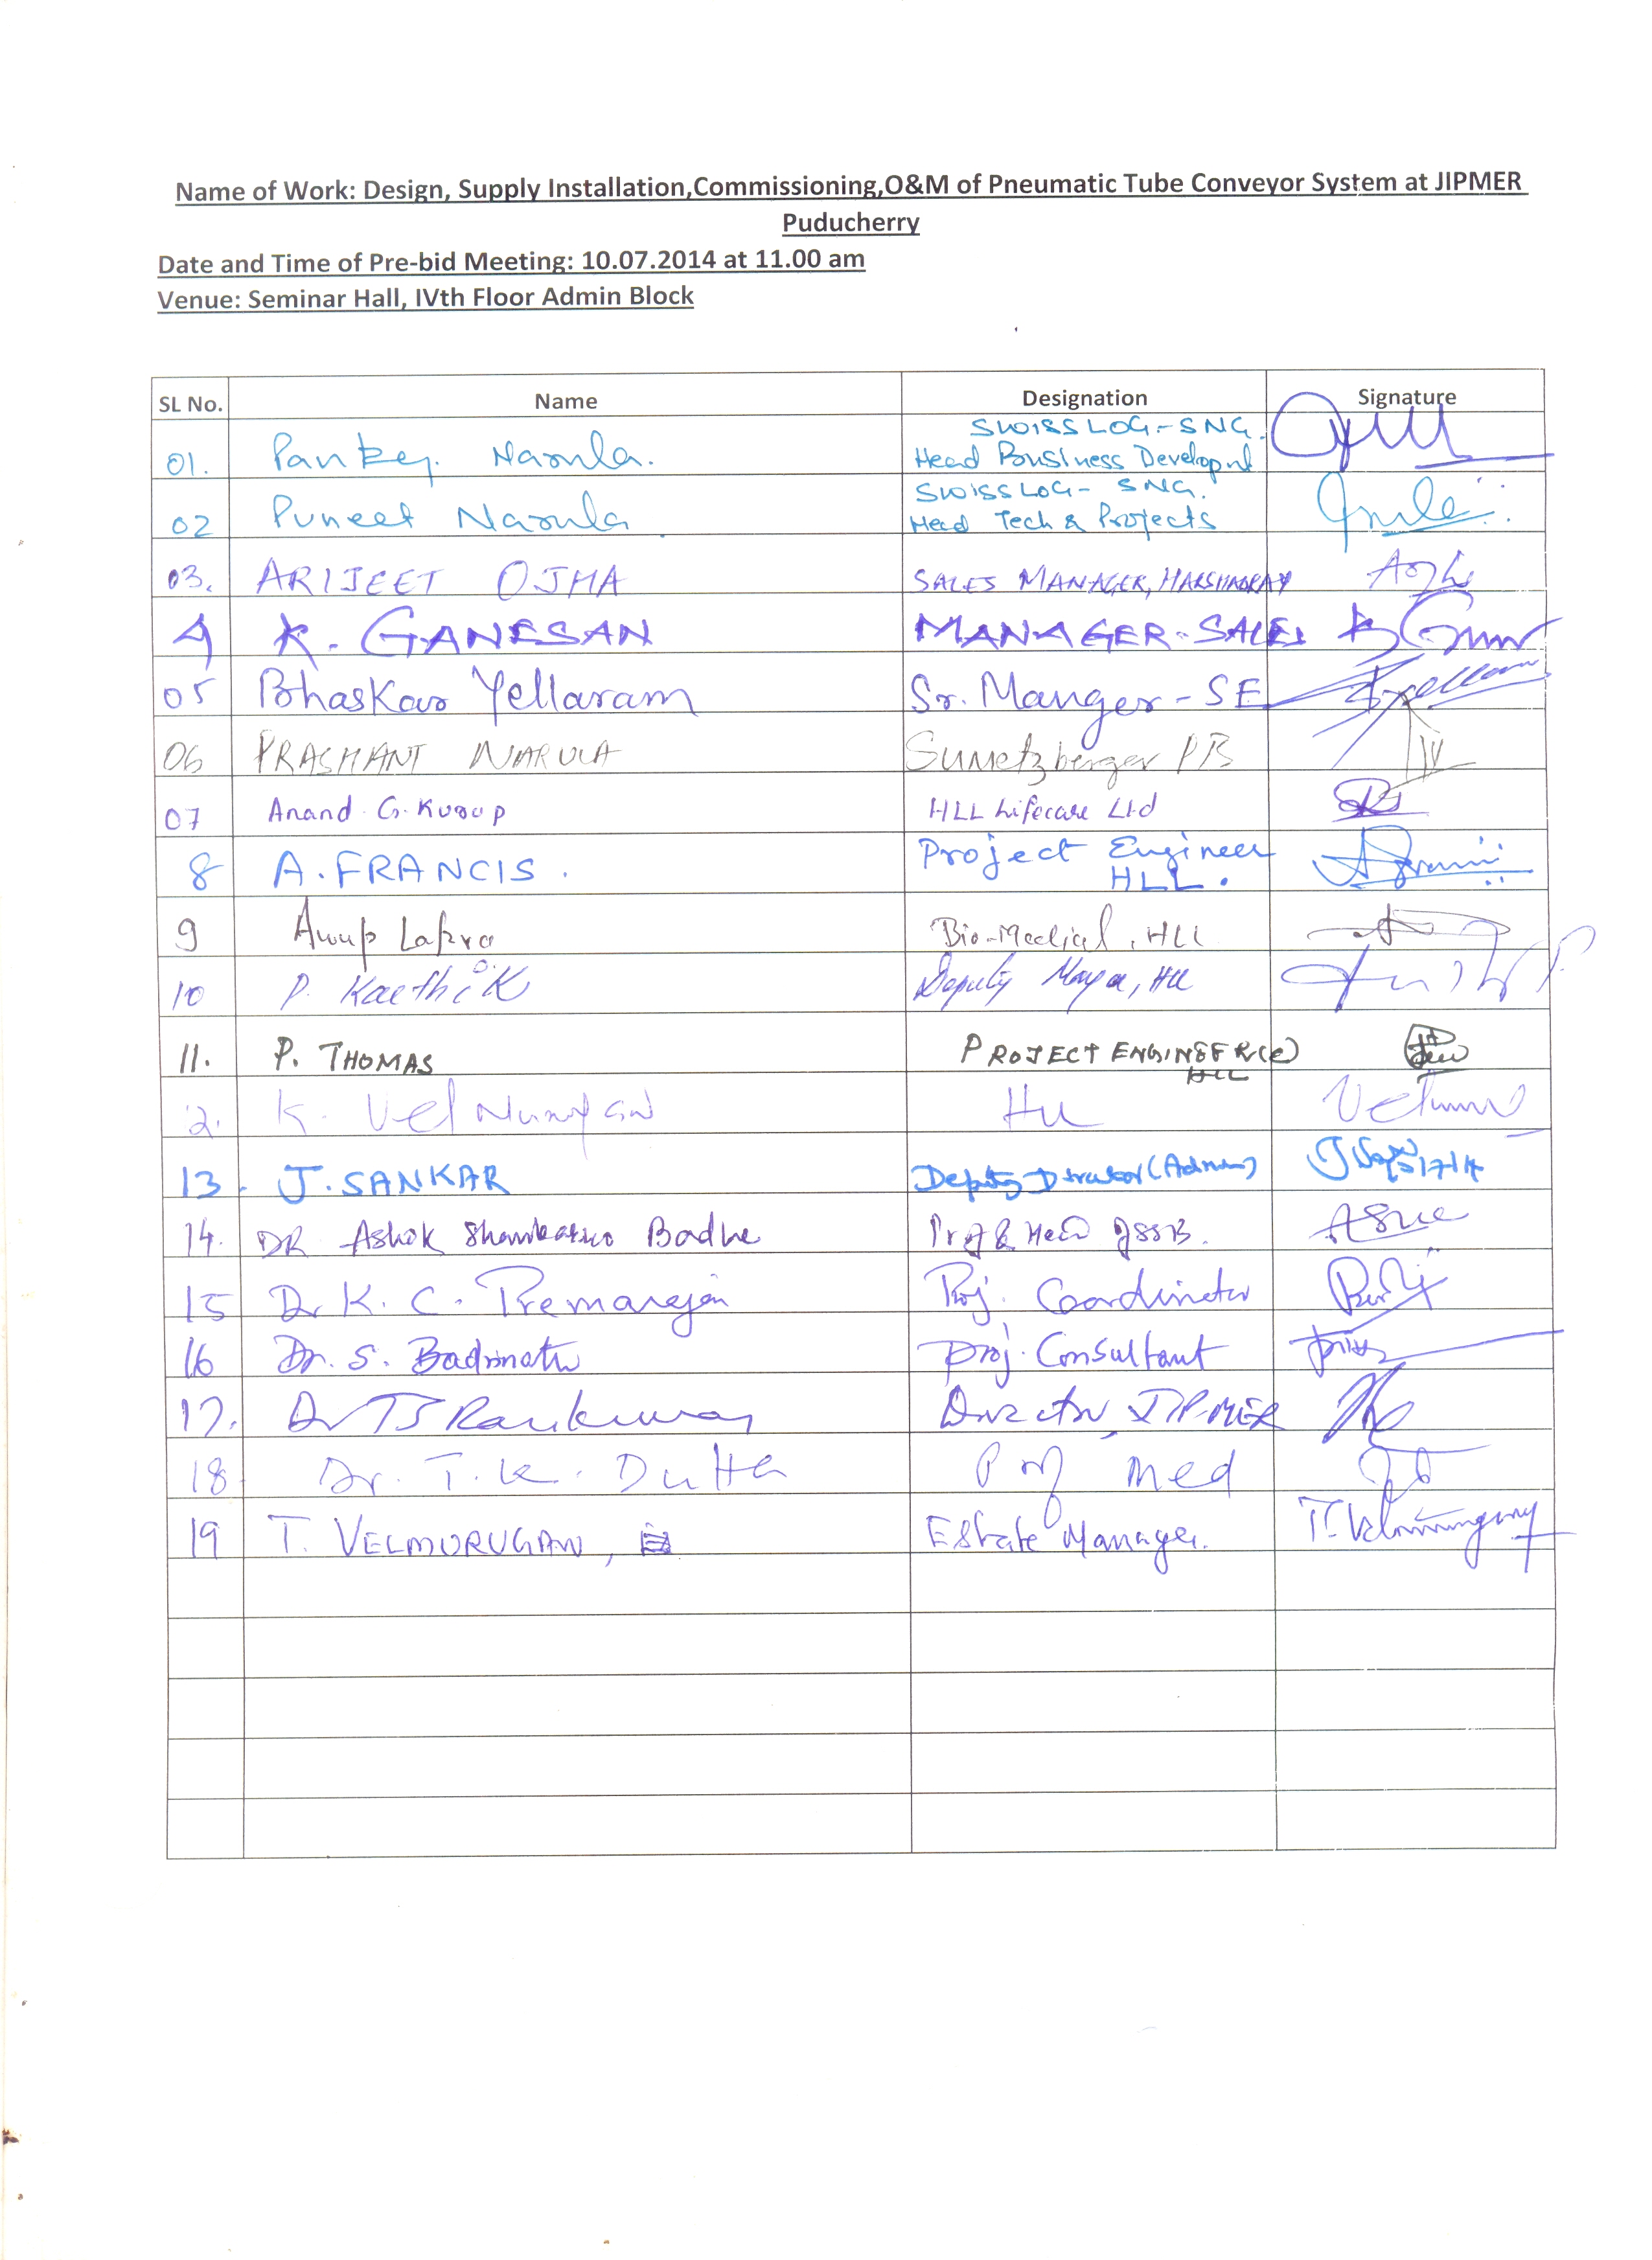 Name of Work: Design, Supply Installation,Commissioning,O&M of Pneumatic Tube Conveyor System at JIPMER
Puducherry
Date and Time of Pre-bid Meeting: 10.07.2014 at 11.00 am
Venue: Seminar Hall, IVth Floor Admin Block
SL No. Name Designation Signature
SWISSLOG-SNG.
01. Pankej Narula. Head Business Developnt
SWISSLOG- SNG.
02 Puneet Narula Head Tech & Projects
03. ARIJEET OJHA SALES MANAGER,
4 K. GANESAN MANAGER-SALES
05 Bhaskar Yellaram Sr. Manger-SE
06 PRASHANT NARULA Sumetzberger PB
07 Anand G. Kurup HLL Lifecare Ltd
Project Engineer
8 A. FRANCIS. HLL.
9 Anup Lakra Bio-Medical, HLL
10 P. Karthik Deputy HLL
11. P. THOMAS PROJECT ENGINEER(E)
HLL
2. K. Vel HLL
13. J. SANKAR Deputy Director (Admn)
14. DR Ashok Badhe Prof & Head JSSB.
15 Dr K. C. Premarajan Proj. Coordinator
16 Dr. S. Badrinath Proj. Consultant
17. Dr TS Ravikumar Director, JIPMER
18 Dr. T. K. Dutta Prof Med
19 T. VELMURUGAN, Estate Manager. T. Velmurugan